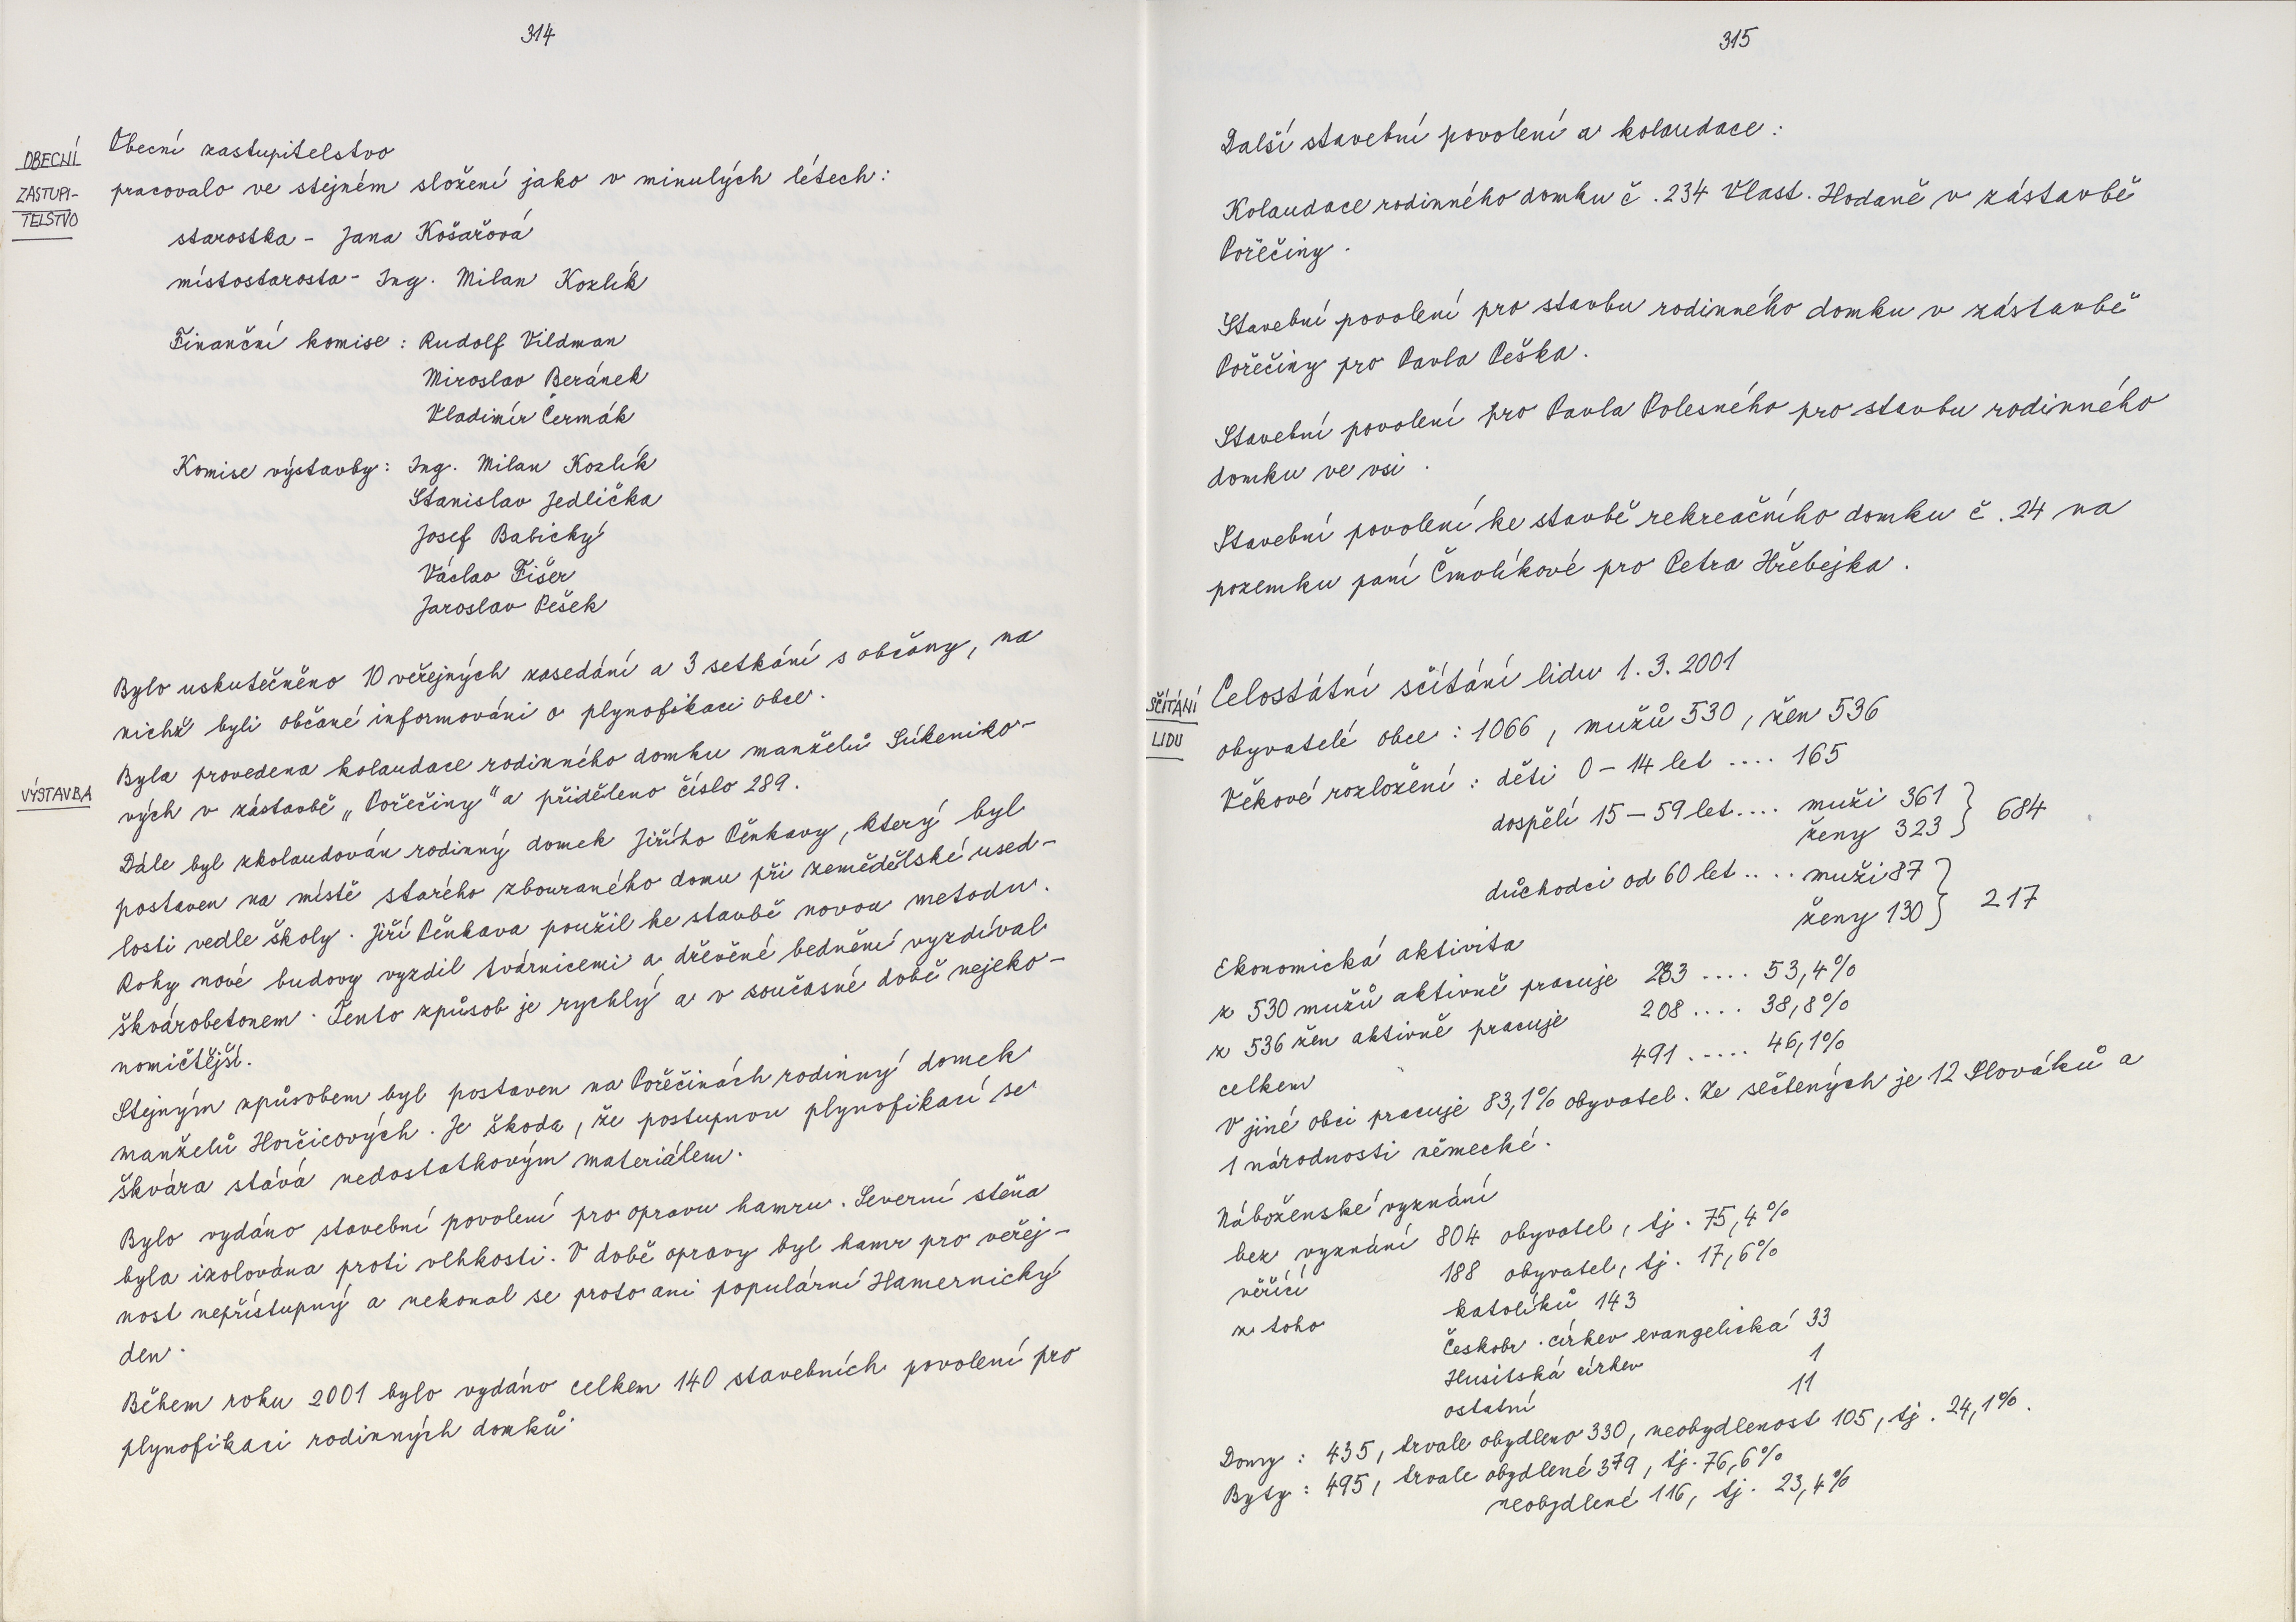 314
OBECNÍ
ZASTUPI-
TELSTVO
Obecní zastupitelstvo
pracovalo ve stejném složení jako v minulých létech:
starostka - Jana Košařová
místostarosta - Ing. Milan Kozlík
Finanční komise: Rudolf Vildman
Miroslav Beránek
Vladimír Čermák
Komise výstavby: Ing. Milan Kozlík
Stanislav Jedlička
Josef Babický
Václav Fišer
Jaroslav Pešek
Bylo uskutečněno 10 veřejných zasedání a 3 setkání s občany, na
nichž byli občané informováni o plynofikaci obce.
VÝSTAVBA
Byla provedena kolaudace rodinného domku manželů Súkeníko-
vých v zástavbě „Pořečiny" a přiděleno číslo 289.
Dále byl zkolaudován rodinný domek Jiřího Pěnkavy, který byl
postaven na místě starého zbouraného domu při zemědělské used-
losti vedle školy. Jiří Pěnkava použil ke stavbě novou metodu.
Rohy nové budovy vyzdil tvárnicemi a dřevěné bednění vyzdíval
škvárobetonem. Tento způsob je rychlý a v současné době nejeko-
nomičtější.
Stejným způsobem byl postaven na Pořečinách rodinný domek
manželů Horčicových. Je škoda, že postupnou plynofikací se
škvára stává nedostatkovým materiálem.
Bylo vydáno stavební povolení pro opravu hamru. Severní stěna
byla izolována proti vlhkosti. V době opravy byl hamr pro veřej-
nost nepřístupný a nekonal se proto ani populární Hamernický
den.
Během roku 2001 bylo vydáno celkem 140 stavebních povolení pro
plynofikaci rodinných domků.
315
Další stavební povolení a kolaudace:
Kolaudace rodinného domku č. 234 Vlast. Hodaně v zástavbě
Pořečiny.
Stavební povolení pro stavbu rodinného domku v zástavbě
Pořečiny pro Pavla Peška.
Stavební povolení pro Pavla Polesného pro stavbu rodinného
domku ve vsi.
Stavební povolení ke stavbě rekreačního domku č. 24 na
pozemku paní Čmolíkové pro Petra Hřebejka.
SČÍTÁNÍ
LIDU
Celostátní sčítání lidu 1. 3. 2001
obyvatelé obce: 1066, mužů 530, žen 536
Věkové rozložení: děti 0 - 14 let .... 165
dospělí 15 - 59 let.... muži 361
ženy 323 } 684
důchodci od 60 let .... muži 87
ženy 130 } 217
Ekonomická aktivita
z 530 mužů aktivně pracuje 283 .... 53,4%
z 536 žen aktivně pracuje 208 .... 38,8%
celkem 491 ..... 46,1%
V jiné obci pracuje 83,1% obyvatel. Ze sečtených je 12 Slováků a
1 národnosti německé.
Náboženské vyznání
bez vyznání 804 obyvatel, tj. 75,4%
věřící 188 obyvatel, tj. 17,6%
z toho katolíků 143
Českobr. církev evangelická 33
Husitská církev 1
ostatní 11
Domy: 435, trvale obydleno 330, neobydlenost 105, tj. 24,1%.
Byty: 495, trvale obydlené 379, tj. 76,6%
neobydlené 116, tj. 23,4%